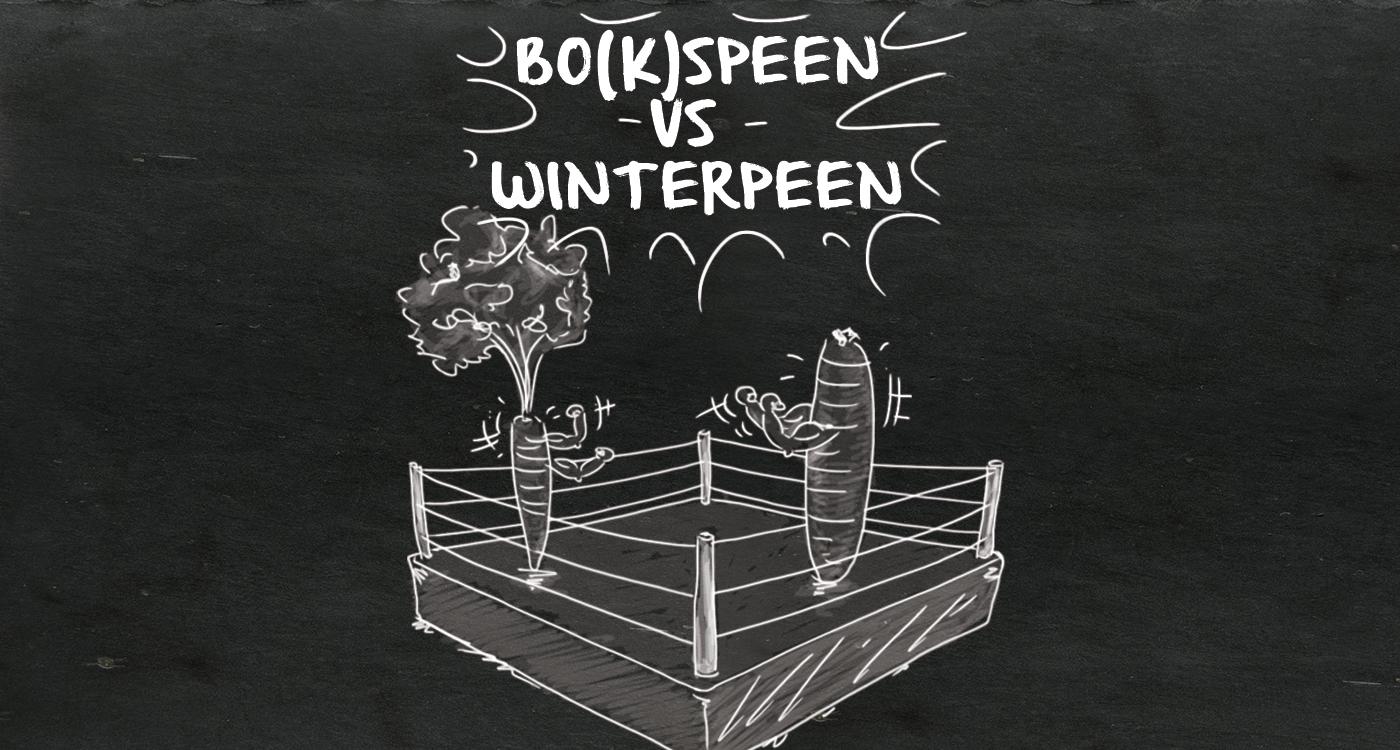 BO(K)SPEEN
- VS -
WINTERPEEN